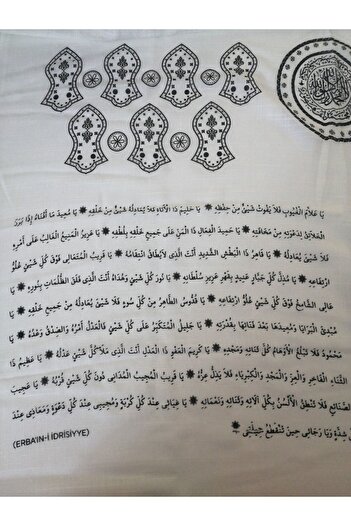 يَا عَلَّامَ الْغُيُوبِ فَلَا يَفُوتُ شَيْئٌ مِنْ حِفْظِهِ ❋ يَا حَلِيمُ ذَا الْاَنَاةِ فَلَا يُعَادِلُهُ شَيْئٌ مِنْ خَلْقِهِ ❋ يَا مُعِيدَ مَا اَفْنَاهُ اِذَا بَرَزَ
الْخَلَائِقُ لِدَعْوَتِهِ مِنْ مَخَافَتِهِ ❋ يَا حَمِيدَ الْفِعَالِ ذَا الْمَنِّ عَلَى جَمِيعِ خَلْقِهِ بِلُطْفِهِ ❋ يَا عَزِيزُ الْمَنِيعُ الْغَالِبُ عَلَى اَمْرِهِ
فَلَا شَيْئَ يُعَادِلُهُ ❋ يَا قَاهِرُ ذَا الْبَطْشِ الشَّدِيدِ اَنْتَ الَّذِي لَايُطَاقُ انْتِقَامُهُ ❋ يَا قَرِيبُ الْمُتَعَالِي فَوْقَ كُلِّ شَيْئٍ عُلُوُّ
ارْتِفَاعِهِ ❋ يَا مُذِلَّ كُلِّ جَبَّارٍ عَنِيدٍ بِقَهْرِ عَزِيزِ سُلْطَانِهِ ❋ يَا نُورَ كُلِّ شَيْئٍ وَهُدَاهُ اَنْتَ الَّذِي فَلَقَ الظُّلُمَاتِ بِنُورِهِ ❋ يَا
عَالِيَ الشَّامِخُ فَوْقَ كُلِّ شَيْئٍ عُلُوُّ ارْتِفَاعِهِ ❋ يَا قُدُّوسُ الطَّاهِرُ مِنْ كُلِّ سُوءٍ فَلَا شَيْئَ يُعَادِلُهُ مِنْ جَمِيعِ خَلْقِهِ ❋ يَا
مُبْدِئَ الْبَرَايَا وَمُعِيدَهَا بَعْدَ فَنَائِهَا بِقُدْرَتِهِ ❋ يَا جَلِيلُ الْمُتَكَبِّرُ عَلَى كُلِّ شَيْئٍ فَالْعَدْلُ اَمْرُهُ وَالصِّدْقُ وَعْدُهُ ❋ يَا
مَحْمُودُ فَلَا تَبْلُغُ الْاَوْهَامُ كُلَّ ثَنَائِهِ وَمَجْدِهِ ❋ يَا كَرِيمَ الْعَفْوِ ذَا الْعَدْلِ اَنْتَ الَّذِي مَلَأَ كُلَّ شَيْئٍ عَدْلُهُ ❋ يَا عَظِيمُ ذَا
الثَّنَاءِ الْفَاخِرِ وَالْعِزِّ وَالْمَجْدِ وَالْكِبْرِيَاءِ فَلَا يَذِلُّ عِزُّهُ ❋ يَا قَرِيبُ الْمُجِيبُ الْمُدَانِي دُونَ كُلِّ شَيْئٍ قُرْبُهُ ❋ يَا عَجِيبَ
الصَّنَائِعِ فَلَا تَنْطِقُ الْاَلْسُنُ بِكُلِّ اٰلَائِهِ وَثَنَائِهِ وَنَعْمَائِهِ ❋ يَا غِيَاثِي عِنْدَ كُلِّ كُرْبَةٍ وَمُجِيبِي عِنْدَ كُلِّ دَعْوَةٍ وَمَعَاذِي عِنْدَ
كُلِّ شِدَّةٍ وَيَا رَجَائِي حِينَ تَنْقَطِعُ حِيلَتِي ❋
(ERBA'IN-İ İDRİSİYYE)